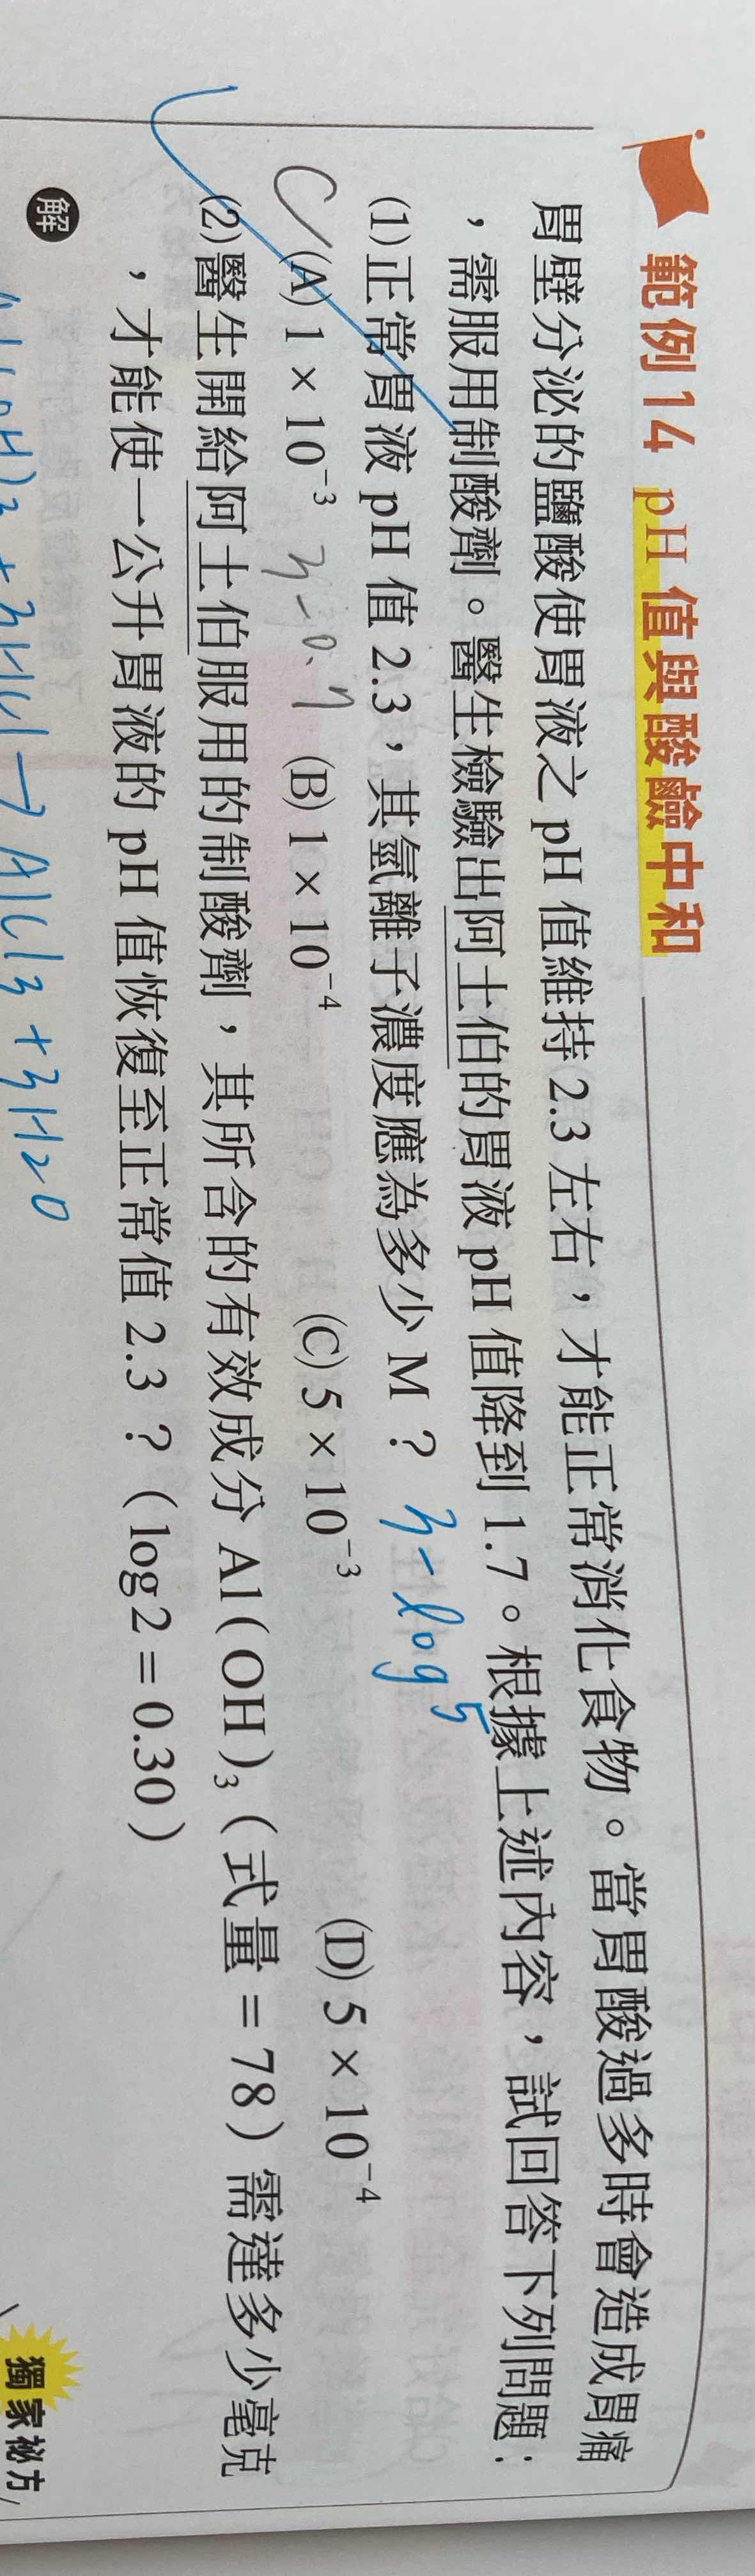 範例14 pH 值與酸鹼中和
胃壁分泌的鹽酸使胃液之 pH 值維持 2.3 左右,才能正常消化食物。當胃酸過多時會造成胃痛
,需服用制酸劑。醫生檢驗出阿土伯的胃液 pH 值降到 1.7。根據上述內容,試回答下列問題:
(1)正常胃液 pH 值 2.3,其氫離子濃度應為多少 M? 3-log5
C (A) 1×10⁻³ 3-0.7 (B) 1×10⁻⁴ (C) 5×10⁻³ (D) 5×10⁻⁴
(2)醫生開給阿土伯服用的制酸劑,其所含的有效成分 Al(OH)₃(式量=78)需達多少毫克
,才能使一公升胃液的 pH 值恢復至正常值 2.3?(log2=0.30)
解
Al(OH)3 + 3HCl → AlCl3 + 3H2O
獨家祕方